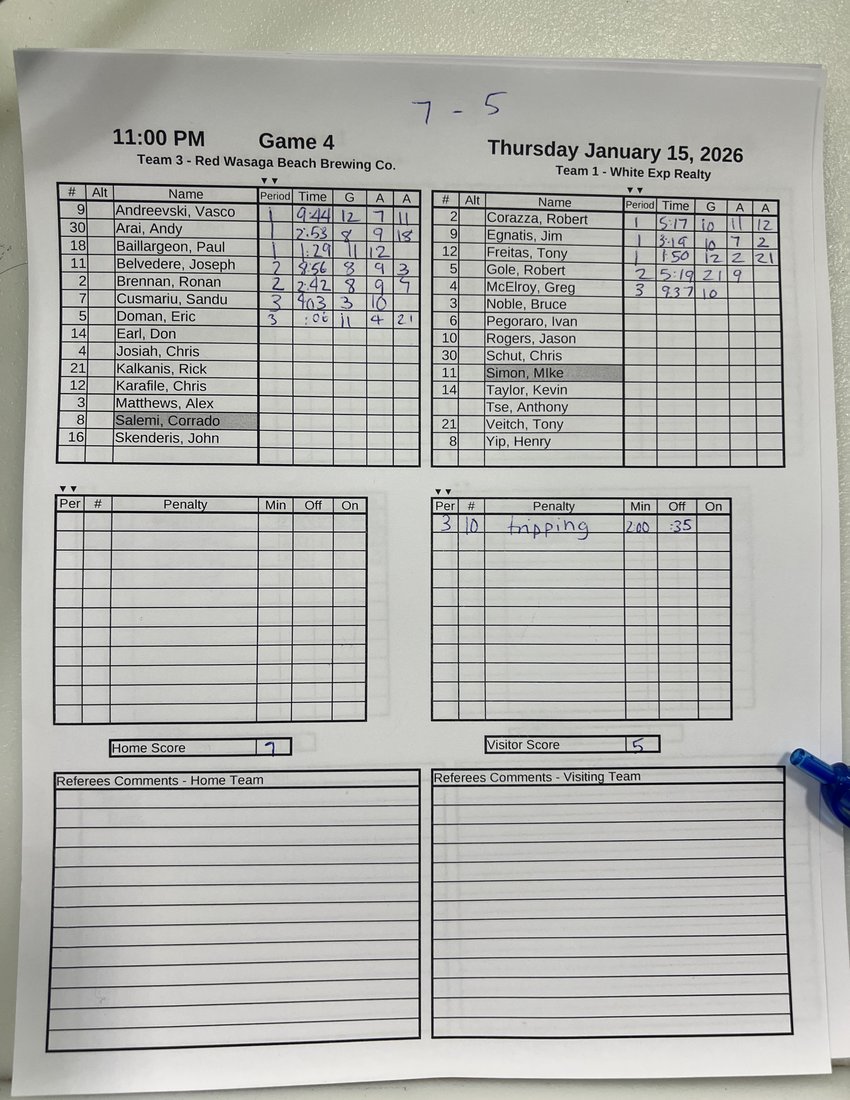 7 - 5
11:00 PM Game 4 Thursday January 15, 2026
Team 3 - Red Wasaga Beach Brewing Co.
Team 1 - White Exp Realty
# Alt Name Period Time G A A
9 Andreevski, Vasco 1 9:44 12 7 11
30 Arai, Andy 1 2:53 8 9 18
18 Baillargeon, Paul 1 1:29 11 12
11 Belvedere, Joseph 2 8:56 8 9 3
2 Brennan, Ronan 2 2:42 8 9 7
7 Cusmariu, Sandu 3 4:03 3 10
5 Doman, Eric 3 11 4 21
14 Earl, Don
4 Josiah, Chris
21 Kalkanis, Rick
12 Karafile, Chris
3 Matthews, Alex
8 Salemi, Corrado
16 Skenderis, John
# Alt Name Period Time G A A
2 Corazza, Robert 1 5:17 10 11 12
9 Egnatis, Jim 1 3:19 10 7 2
12 Freitas, Tony 1 1:50 12 2 21
5 Gole, Robert 2 5:19 21 9
4 McElroy, Greg 3 937 10
3 Noble, Bruce
6 Pegoraro, Ivan
10 Rogers, Jason
30 Schut, Chris
11 Simon, MIke
14 Taylor, Kevin
Tse, Anthony
21 Veitch, Tony
8 Yip, Henry
Per # Penalty Min Off On
Per # Penalty Min Off On
3 10 tripping 2:00 :35
Home Score 7
Visitor Score 5
Referees Comments - Home Team
Referees Comments - Visiting Team